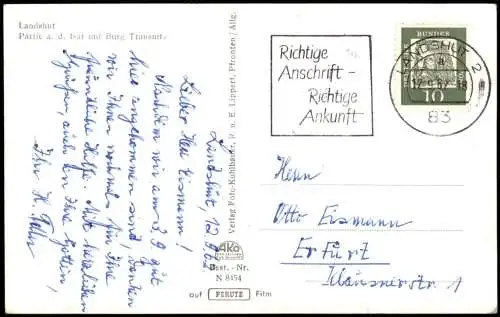 Landshut
Partie a. d. Isar und Burg Trausnitz
Landshut, 12.9.62
Lieber Herr Eismann!
Nachdem wir am 3.9 gut
hier angekommen sind, danken
wir Ihnen nochmals für Ihre
freundliche Hilfe. Mit herzlichen
Grüßen, auch an Ihre Gattin,
Ihr H.
Verlag Foto-Kohlbauer, R. u. E. Lippert, Pfronten/Allg.
AKO
Best.-Nr.
N 8454
auf PERUTZ Film
Richtige
Anschrift -
Richtige
Ankunft
LANDSHUT 2
a
83
DEUTSCHE BUNDESPOST
10
Herrn
Otto Eismann
Erfurt